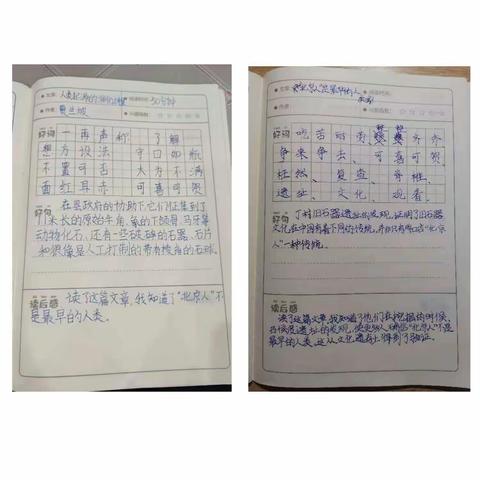 文章: 人类起源的演化过程 阅读时间: 30分钟
作者: 贾兰坡 心动指数:
好词
一再声称 了解
想方设法 守口如瓶
不置可否 大为不满
面红耳赤 可喜可贺
好句
在县政府的协助下,它们征集到了
1米长的原始牛角、象的下颌骨、马牙等
动物化石、还有一些破碎的石器、石片
和很像是人工打制的带有棱角的石球。
读后感
读了这篇文章,我知道了"北京人"不
是最早的人类。
文章: 人是最早的人 阅读时间:
作者: 心动指数:
好词
吃苦耐劳 整整齐齐
争来争去、可喜可贺
柱然、复查、脊椎、
遗址、文化、观看。
好句
丁村旧石器遗址的发现,证明了旧石器
文化在中国有着不同的传统,并非只有周口店"北京
人"一种传统。
读后感
读了这篇文章,我知道了他们在挖掘的时候,
遗址的发现,使 "北京人"不是
最早的人类,这从文化遗存上得到了验证。